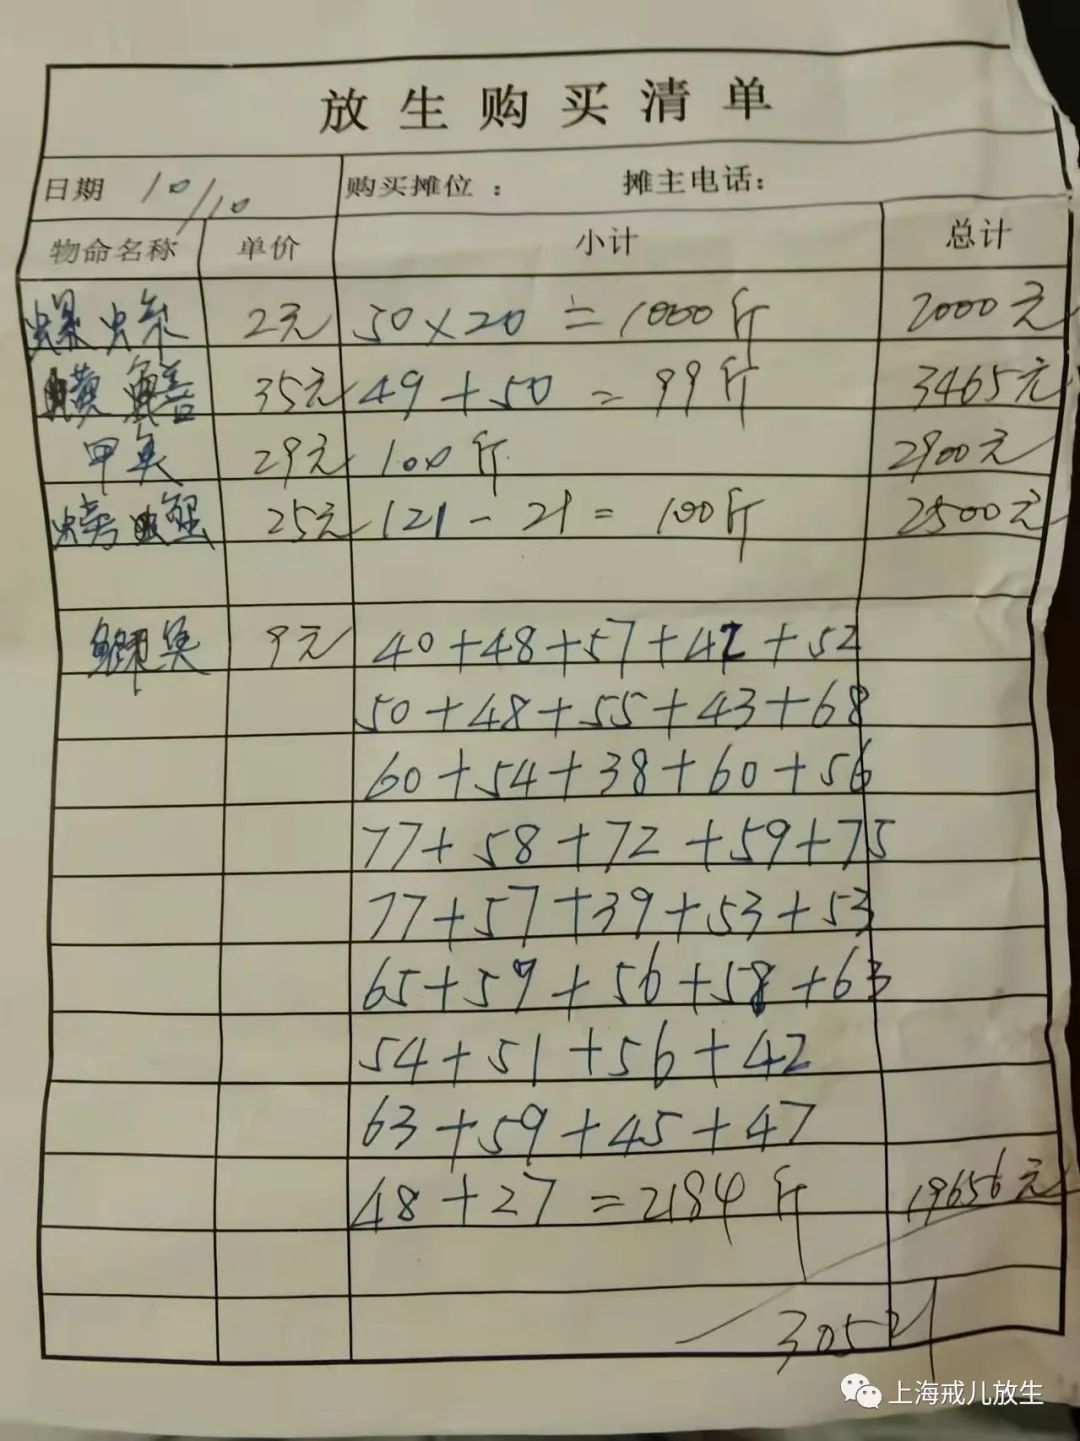 放生购买清单
日期 10/10 购买摊位： 摊主电话：
物命名称 单价 小计 总计
螺蛳 2元 50×20=1000斤 2000元
黄鳝 35元 49+50=99斤 3465元
甲鱼 29元 100斤 2900元
螃蟹 25元 121-21=100斤 2500元
鲫鱼 9元 40+48+57+42+52
50+48+55+43+68
60+54+38+60+56
77+58+72+59+75
77+57+39+53+53
65+59+56+58+63
54+51+56+42
63+59+45+47
48+27=2184斤 19656元
30521
上海戒儿放生